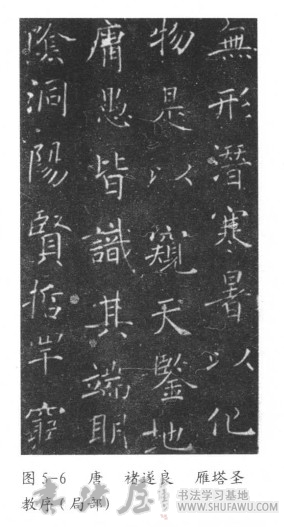 無形潛寒暑以化
物是以窺天鑒地
庸愚皆識其端明
陰洞陽賢哲罕窮
图 5-6 唐 褚遂良 雁塔圣
教序(局部)
书法屋
书法学习基地
WWW.SHUFAWU.COM